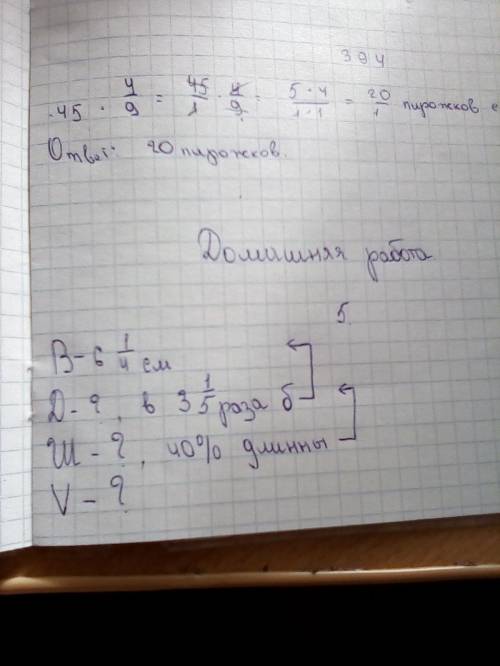 394
45 · 4/9 = 45/1 · 4/9 = 5·4/1·1 = 20/1 пирожков с
Ответ: 20 пирожков.
Домашняя работа
5.
В - 6 1/4 см
Д - ?, в 3 1/5 раза б
Ш - ?, 40% длинны
V - ?